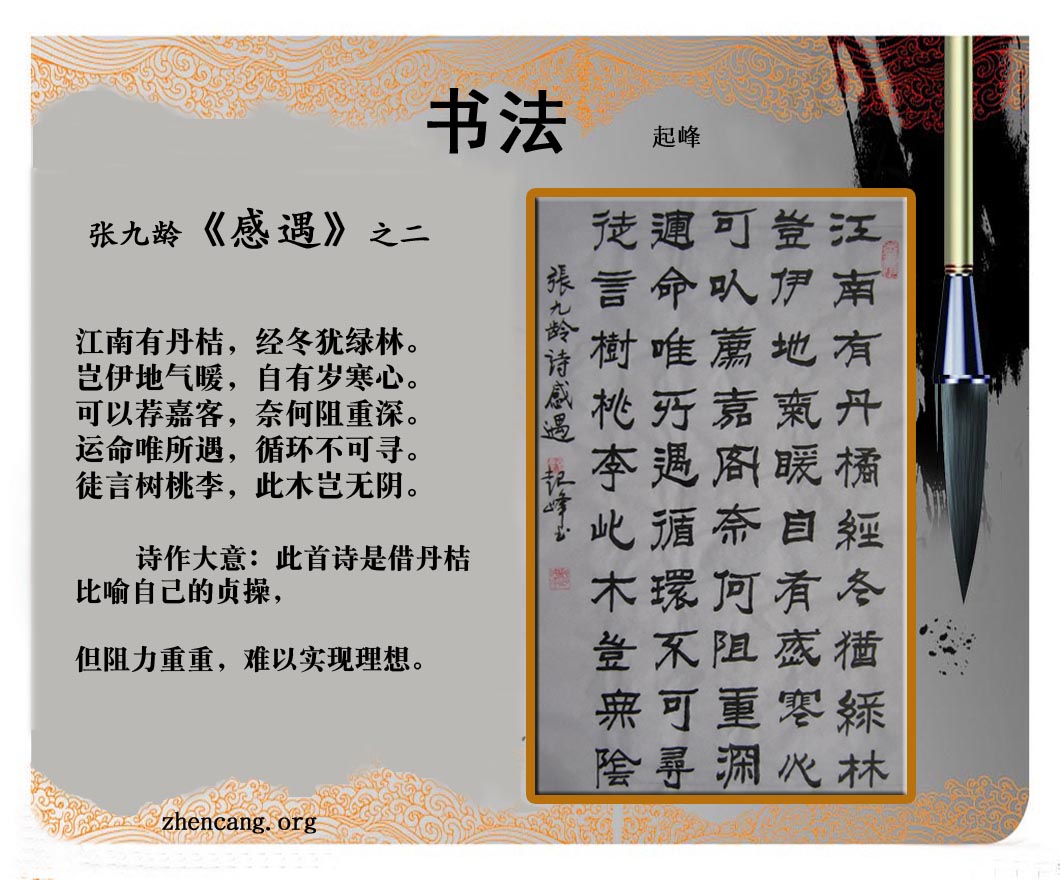 书法
起峰
张九龄《感遇》之二
江南有丹桔，经冬犹绿林。
岂伊地气暖，自有岁寒心。
可以荐嘉客，奈何阻重深。
运命唯所遇，循环不可寻。
徒言树桃李，此木岂无阴。
诗作大意：此首诗是借丹桔
比喻自己的贞操，
但阻力重重，难以实现理想。
江南有丹橘經冬猶綠林
豈伊地氣暖自有歲寒心
可㕥薦嘉客奈何阻重深
運命唯所遇循環不可尋
徒言樹桃李此木豈無陰
張九龄诗感遇 起峰书
zhencang.org